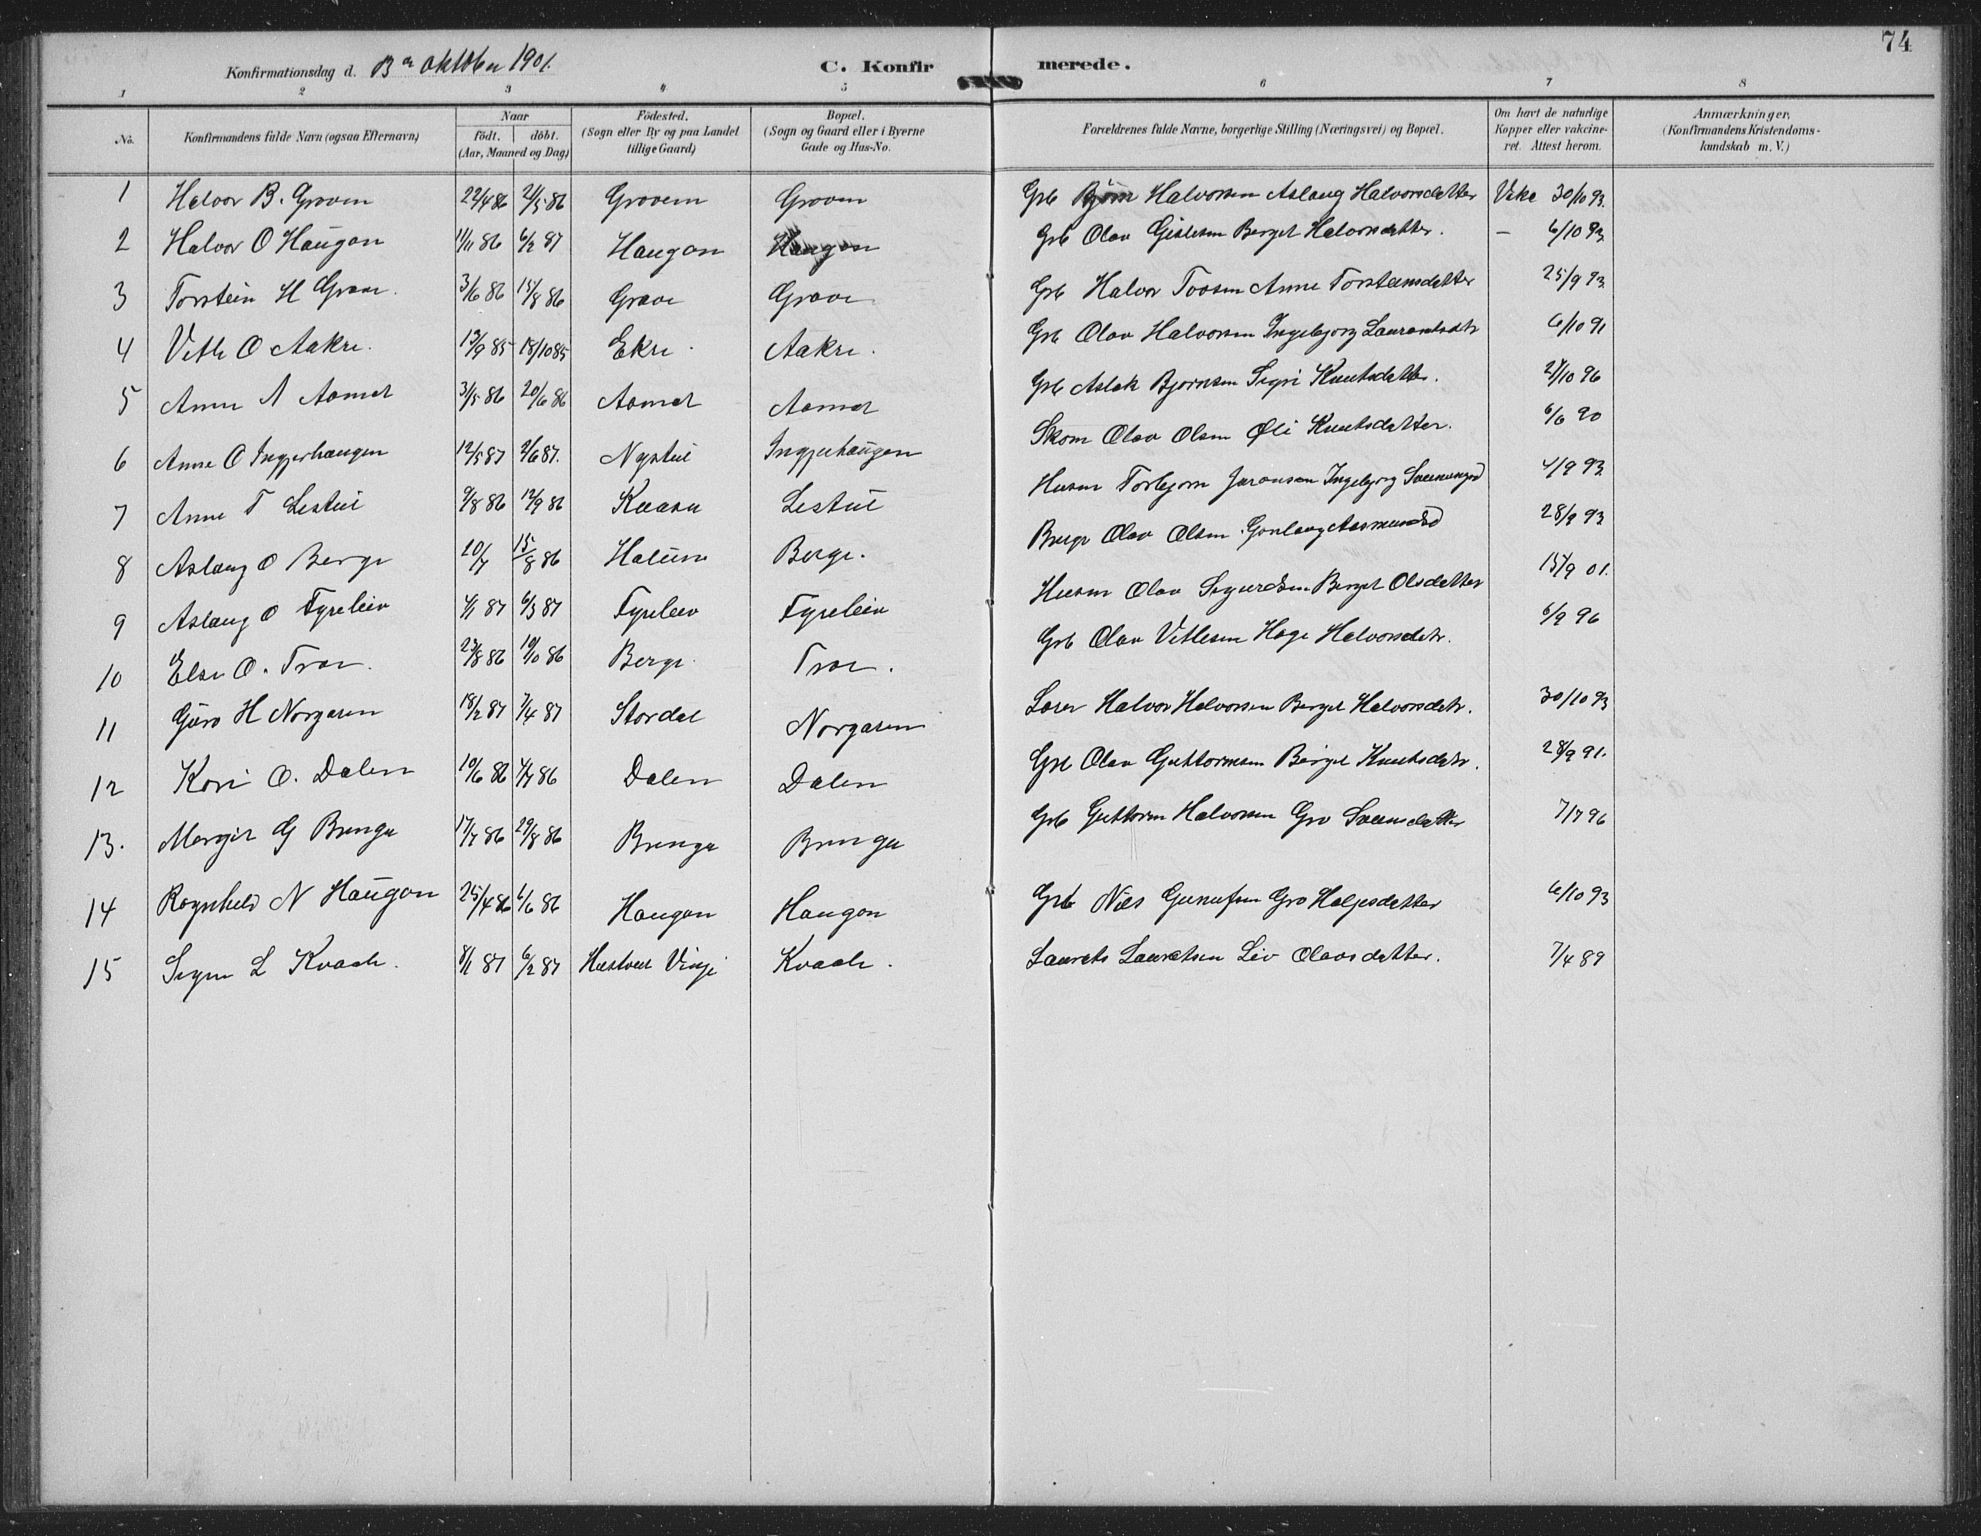 74
Konfirmationsdag d. 13de oktober 1901.
C. Konfirmerede.
1 2 3 4 5 6 7 8
No. Konfirmandens fulde Navn (ogsaa Efternavn) Naar födt. döbt. (Aar, Maaned og Dag) Födested. (Sogn eller By og paa Landet tillige Gaard) Bopæl. (Sogn og Gaard eller i Byerne Gade og Hus-No. Forældrenes fulde Navne, borgerlige Stilling (Næringsvei) og Bopæl. Om havt de naturlige Kopper eller vakcineret. Attest herom. Anmærkninger, (Konfirmandens Kristendomskundskab m. V.)
1 Halvor B. Groven 22/4 86 2/5 86 Grovem Groven Grb Bjørn Halvorsen Aslaug Halvorsdatter Vake 30/10 93.
2 Halvor O Haugan 11/11 86 6/2 87 Haugan Haugan Grb Olav Gislesen Berget Halvorsdatter. – 6/10 93.
3 Torstein H Grave. 3/6 86 15/8 86 Grave Grave Grb Halvor Tovsen Anne Torsteinsdatter 25/9 93.
4 Vetle O Aakre. 13/9 85 18/10 85 Ekre. Aakre. Grb Olav Halvorsen Ingebjorg Laurantsdtr 6/10 91
5 Anne A Aamot 3/5 86 20/6 86 Aamot Aamot Grb Aslak Bjørnsen Sigri Knutsdatter. 27/10 96
6 Anne O Ingjerhaugen 12/5 87 2/6 87. Nystul Ingjerhaugen Skom Olav Olsen Øli Knutsdatter. 6/6 90
7 Anne T Lestul 9/8 86 12/9 86 Kaasa Lestul Husm Torbjorn Joronsen Ingebjorg Sveinungsd 4/9 93.
8 Aslaug O Berge 20/7 15/8 86 Berge. Brugr Olav Olsen Gonlaug Aasmundsd 28/9 93
9 Aslaug O Fyreleiv 4/1 87 6/3 87 Fyreleiv Fyreleiv Husm Olav Sigurdsen Berget Olsdatter 15/9 01.
10 Else O. Troe. 23/8 86 10/10 86 Berge. Troe. Grb Olav Vetlesen Hage Halvorsdatr. 6/9 96
11 Guro H Norgaren 18/2 87 3/4 87 Stordal Norgaren Lærer Halvor Halvorsen Berget Halvorsdatr. 30/10 93
12 Kari O. Dalen 10/6 86 4/7 86 Dalen Dalen Grb Olav Guttormsen Berget Knutsdatr. 28/9 91.
13. Margit G Brenga 17/7 86 29/8 86 Brenga Brenga Grb Guttorm Halvorsen Gro Sveinsdatter 7/7 96
14 Ragnhild N Haugan 25/4 86 6/6 86 Haugan Haugan Grb Nils Gunnufsen Gro Halgesdatter 6/10 93
15 Signe L Kvaale. 8/1 87 6/2 87 Hustveit Vinje Kvaale. Laurits Lauretsen Liv Olavsdatter. 7/4 89